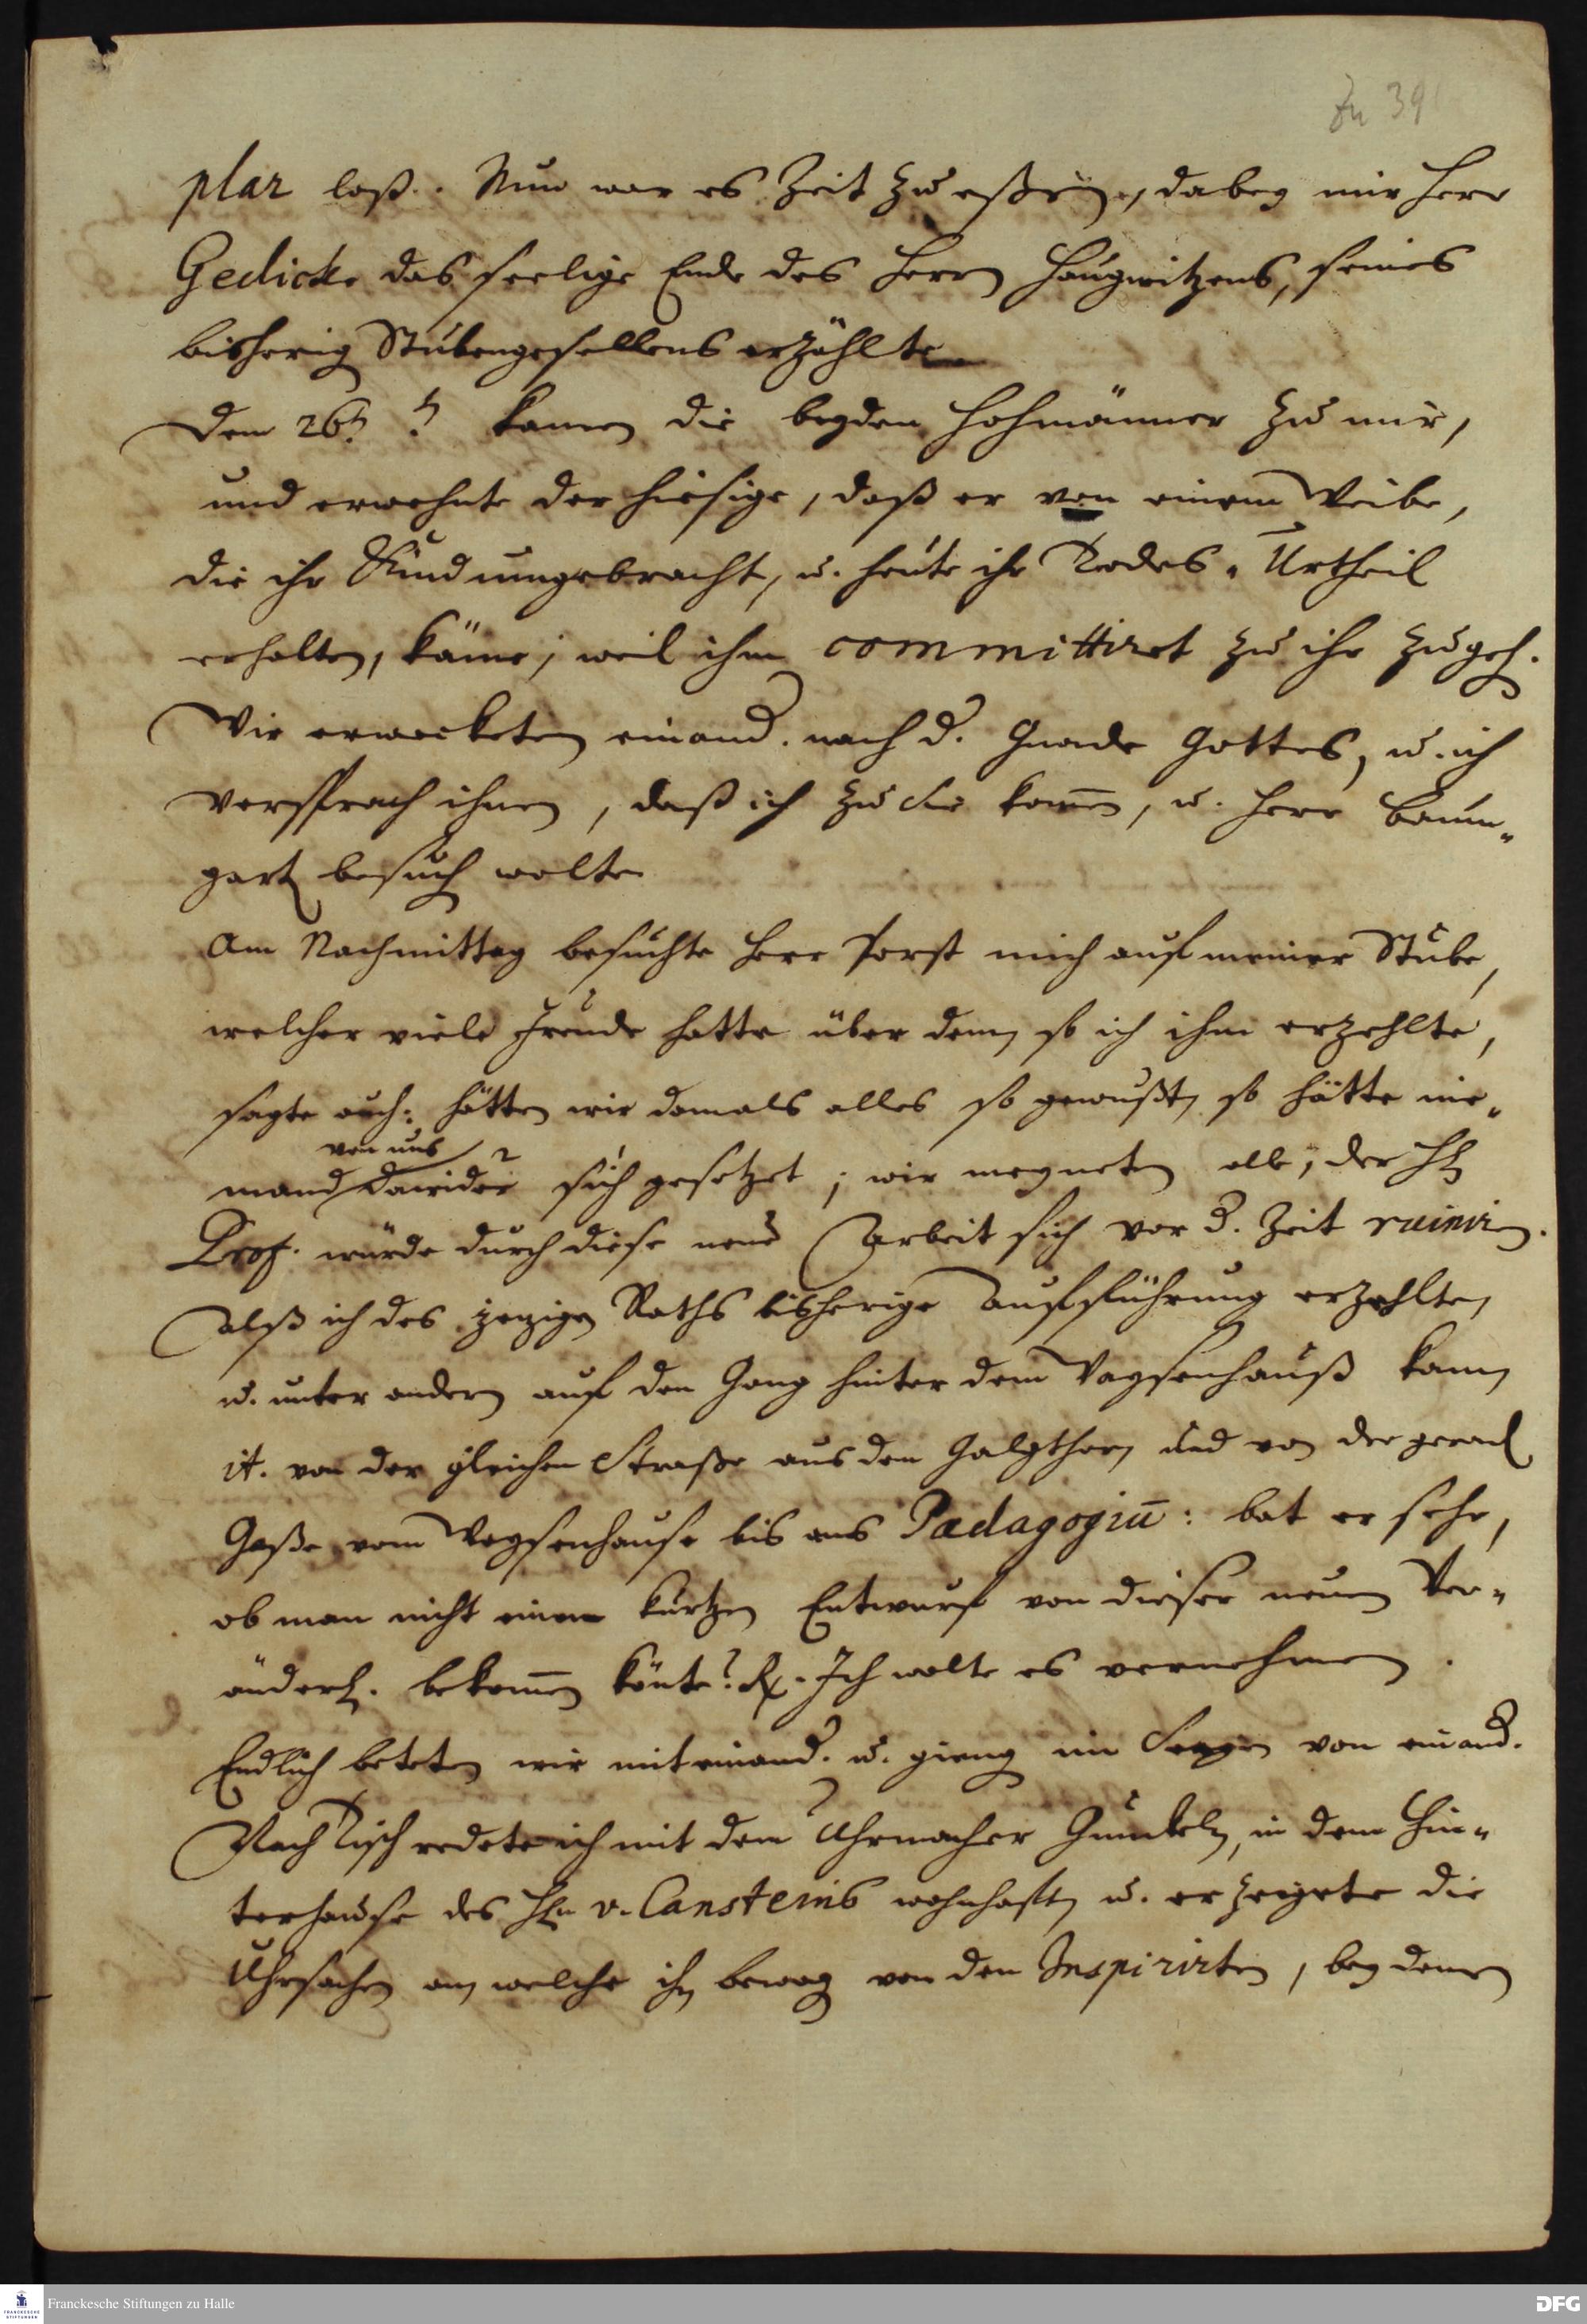 Zu 391
plar laß. Nun war es Zeit zu eßen, dabey mir Herr
Gedicke das seelige Ende des Herrn Haugwitzens, seines
bisherig Stubengesellens erzählte
Den 26t. ♄ kamen die beyden Hohmänner zu mir,
und erwehnte der hiesige, daß er von einem Weibe,
die ihr Kind umgebracht, u. heute ihr Todes-Urtheil
erhalten, käme; weil ihm committiret zu ihr zu geh.
Wir erweckten einand. nach d. Gnade Gottes, u. ich
versprach ihnen, daß ich zu Sie kom̄en, u. Herr Baum-
gart besuch wolte
Am Nachmittag besuchte Herr Porst mich auf meiner Stube,
welcher viele Freude hatte über dem, so ich ihm erzehlte,
sagte auch: hätten wir damals alles so gewußt, so hätte nie-
von uns
mand dawider sich gesetzet; wir meyneten alle, der H.
Prof. würde durch diese neue Arbeit sich vor d. Zeit ruinir.
Alß ich des jezigen Raths bisherige Aufführung erzehlte,
u. unter andern auf den Gang hinter dem Waysenhauß kam,
it. von der gleichen Straße aus dem Galgthor, und von der gerad
Gaße vom Waysenhause bis ans Pædagogiū: bat er sehr,
ob man nicht einen kurtzen Entwurf von dieser neuen Ver-
änder. bekom̄en könte? Rx. Ich wolte es vernehmen.
Endlich beteten wir miteinand. u. gieng im Seegen von einand.
Nach Tisch redete ich mit dem Uhrmacher Gunckeln, in dem Hin-
terhause des Hn v. Cansteins wohnhafft, u. er zeigete die
Uhrsachen an, welche ihn bewog von den Inspirirten, bey denen
Franckesche Stiftungen zu Halle
DFG